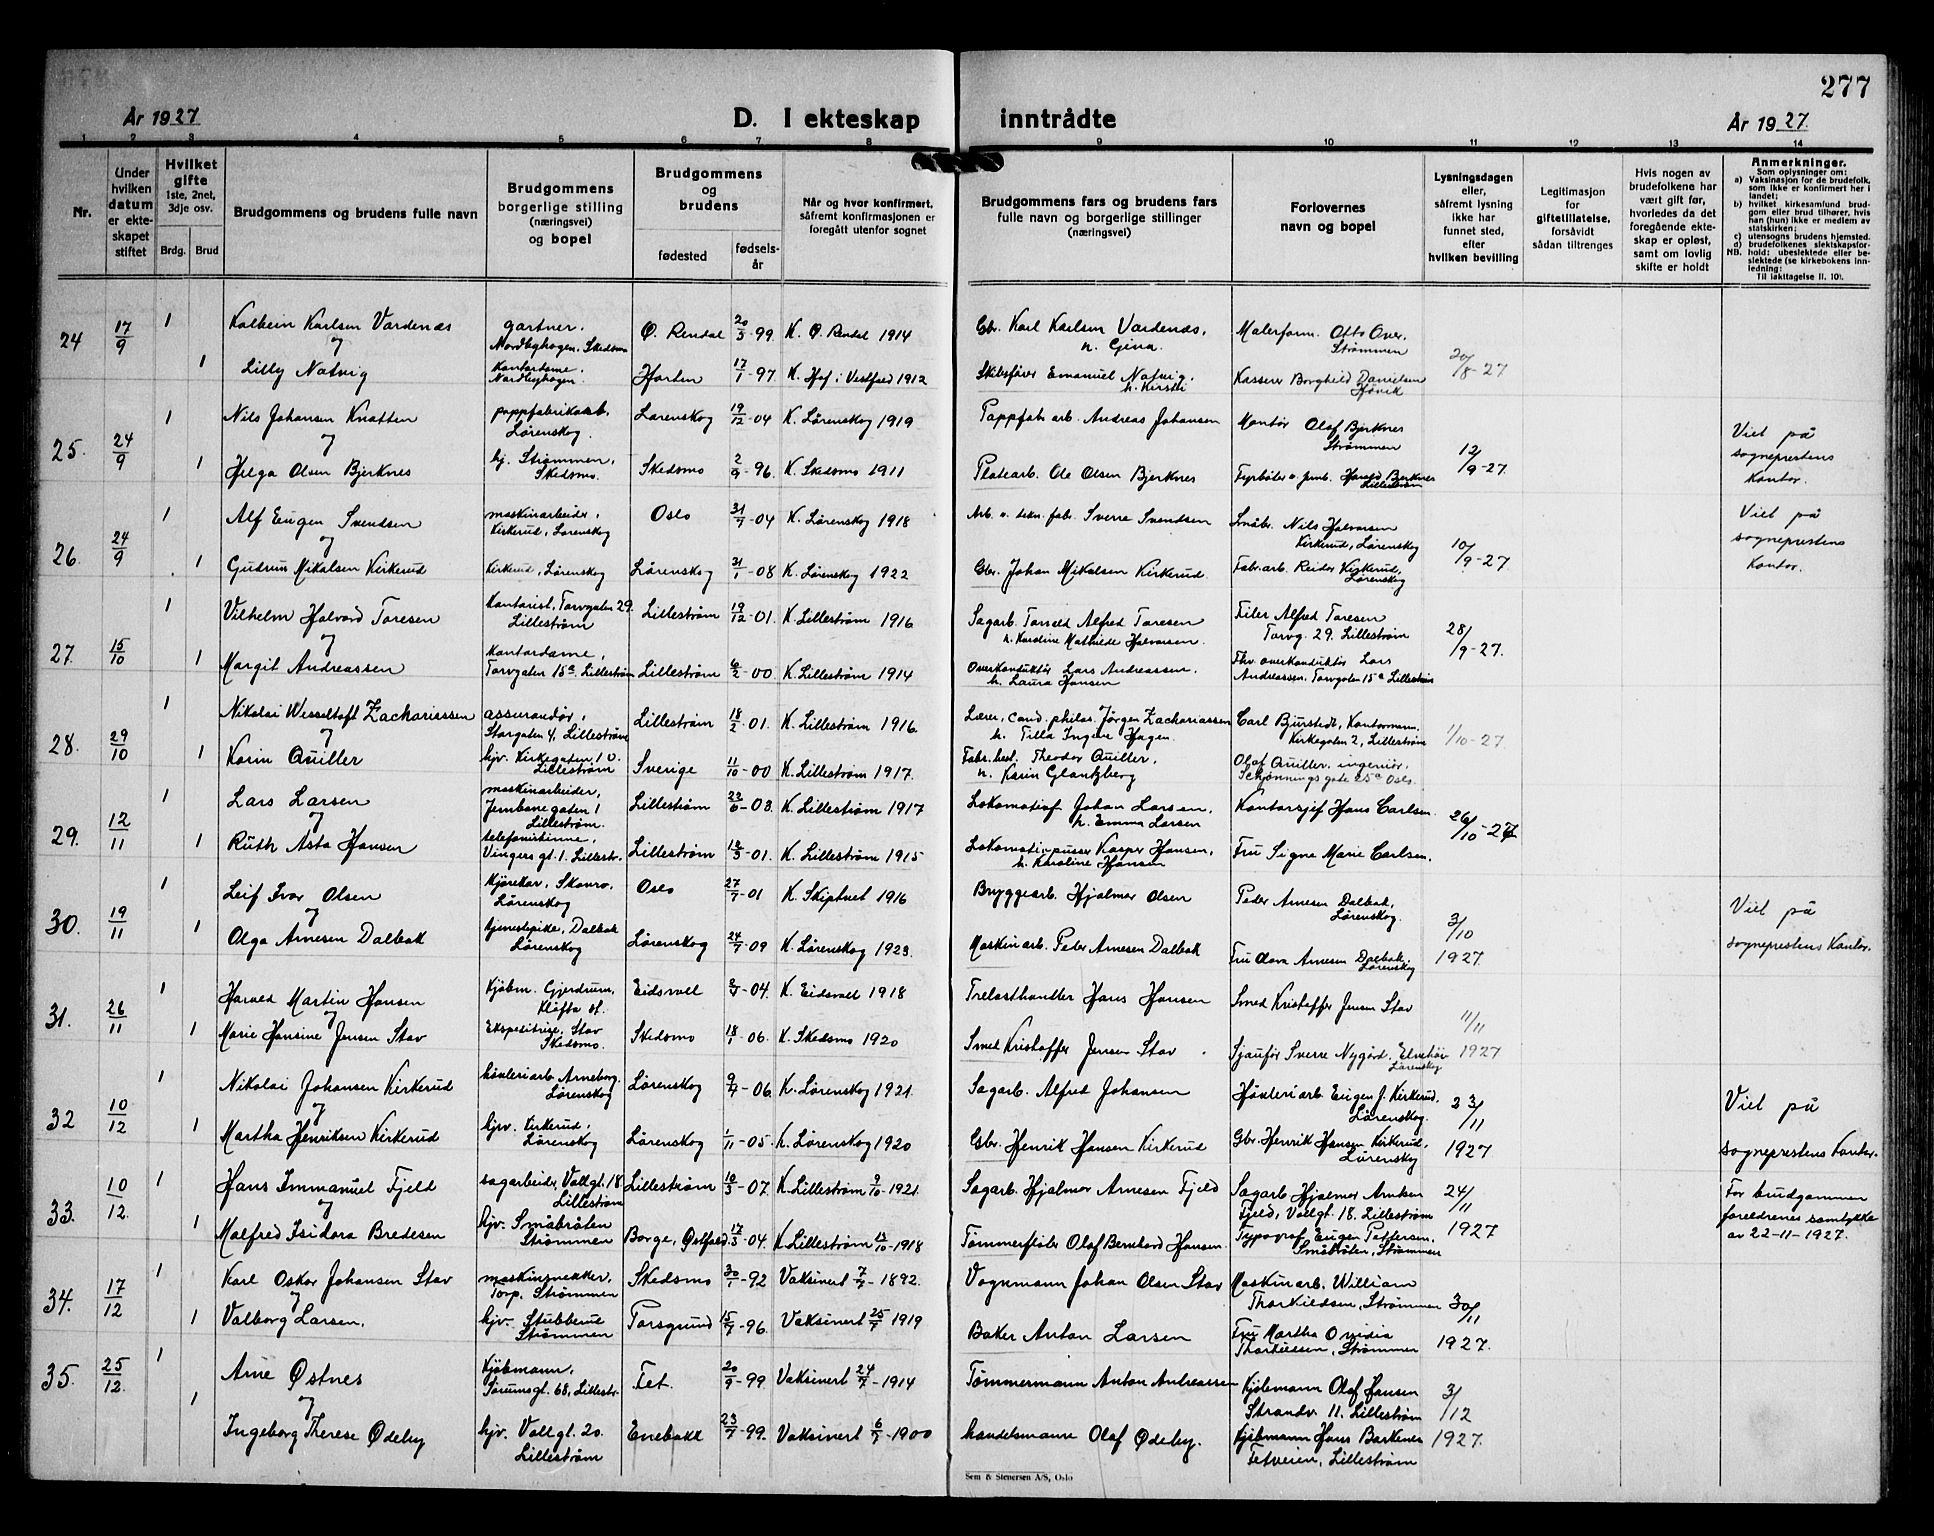 277
År 1927
D. I ekteskap inntrådte
År 1927.
1 2 3 4 5 6 7 8 9 10 11 12 13 14
Nr.
Under hvilken datum er ekteskapet stiftet
Hvilket gifte 1ste, 2net, 3dje osv.
Brdg. Brud
Brudgommens og brudens fulle navn
Brudgommens borgerlige stilling (næringsvei) og bopel
Brudgommens og brudens
fødested
fødsels-år
Når og hvor konfirmert, såfremt konfirmasjonen er foregått utenfor sognet
Brudgommens fars og brudens fars fulle navn og borgerlige stillinger (næringsvei)
Forlovernes navn og bopel
Lysningsdagen eller, såfremt lysning ikke har funnet sted, efter hvilken bevilling
Legitimasjon for giftetillatelse, forsåvidt sådan tiltrenges
Hvis nogen av brudefolkene har vært gift før, hvorledes da det foregående ekteskap er opløst, samt om lovlig skifte er holdt
Anmerkninger.
Som oplysning om:
a) Vaksinasjon for de brudefolk, som ikke er konfirmert her i landet;
b) hvilket kirkesamfund brudgom eller brud tilhører, hvis han (hun) ikke er medlem av statskirken;
c) utensogns brudens hjemsted.
d) brudefolkenes slektskapsforhold: ubeslektede eller beslektede (se kirkebokens innledning:
NB. Til iakttagelse II. 10).
24 17/9 1 Kolbein Karlsen Vardenæs gartner, Nordbyhagen, Skedsmo Ø. Rendal 20/3-99 K. Ø. Rendal 1914 Gbr. Karl Karlsen Vardenæs, h. Gina. Malerform. Otto Over, Strømmen
og
1 Lilly Natvig Kontordame, Nordbyhagen Horten 17/1-97 K. Hof i Vestfold 1912 Skibsfører Emanuel Natvig, h. Kirsti Kasserer Borghild Danielsen Høvik 20/8-27
25. 24/9 1 Nils Johansen Knatten pappfabrikarb. Lørenskog Lørenskog 19/12-04 K. Lørenskog 1919 Pappfab. arb. Andreas Johansen Kontor Olaf Bjerknes Strømmen
og
1 Helga Olsen Bjerknes hj. Strømmen, Skedsmo. Skedsmo 2/9-96 K. Skedsmo 1911 Platearb. Ole Olsen Bjerknes Fyrbøter v. jernb. Harald Bjerknes Lillestrøm 12/9-27. Viet på sogneprestens kontor.
26. 24/9 1 Alf Eugen Svendsen maskinarbeider, Kirkerud, Lørenskog Oslo 31/7-04 K. Lørenskog 1918 Arb. v. fab. Sverre Svendsen Småbr. Nils Halvorsen Kirkerud, Lørenskog
og
1 Gudrun Mikalsen Kirkerud Kirkerud, Lørenskog Lørenskog 31/1-08 K. Lørenskog 1922 Gbr. Johan Mikalsen Kirkerud Fab. arb. Reidar Kirkerud, Lørenskog 10/9-27 Viet på sogneprestens kontor.
27. 15/10 1 Vilhelm Halvard Toresen Kontorist, Torvgaten 29. Lillestrøm Lillestrøm 19/12-01. K. Lillestrøm 1916 Sagarb. Alfred Toresen h. Karoline Mathilde Halvorsen Filer Alfred Toresen Torvg. 29. Lillestrøm
og
1 Margit Andreassen Kontordame, Torvgaten 15a. Lillestrøm Lillestrøm 6/2-00 K. Lillestrøm 1914 Overkonduktør Lars Andreassen, h. Laura Hansen Fhv. overkonduktør Lars Andreassen, Torvgaten 15a Lillestrøm 28/9-27.
28. 29/10 1 Nikolai Wesseltoft Zachariassen assurandør, Storgaten 4, Lillestrøm Lillestrøm 18/2-01. K. Lillestrøm 1916. Lærer, cand. philos. Jørgen Zachariassen h. Tilla Ingen Hagen Carl Bjurstedt, Kontormann, Kirkegaten 2, Lillestrøm
og
1 Karin Quiller hjv. Kirkegaten 10. Lillestrøm Sverige 11/10-00 K. Lillestrøm 1917. Fabr. best. Theodor Quiller, h. Karin Glantzberg Olaf Quiller, ingeniør, Schønnings gate 25a Oslo. 1/10-27
29. 12/11 1 Lars Larsen maskinarbeider, Jernbanegaten 1 Lillestrøm. Lillestrøm 22/6-03. K. Lillestrøm 1917 Lokomotivf. Johan Larsen, h. Emma Larsen Kontorsjef Hans Carlsen
og
1 Ruth Asta Hansen telefonistinne, Vingersgt. 1. Lillestr. Lillestrøm 12/3-01. K. Lillestrøm 1915 Lokomotivpusser Kasper Hansen, h. Karoline Hansen Fru Signe Marie Carlsen. 26/10-27
30. 19/11 1 Leif Ivar Olsen Kjørekar, Skanro. Lørenskog Oslo 27/7-01 K. Skiptvet 1916 Bryggearb. Hjalmar Olsen Peder Arnesen Dalbak, Lørenskog.
og
1 Olga Arnesen Dalbak tjenestepike, Dalbak Lørenskog Lørenskog 24/7-09 K. Lørenskog 1923. Maskinarb. Peder Arnesen Dalbak Fru Olava Arnesen Dalbak, Lørenskog 3/10 1927 Viet på sogneprestens kontor.
31. 26/11 1 Harald Martin Hansen Kjøbm. Gjerdrum, Kløfta st. Eidsvoll 2/7-04. K. Eidsvoll 1918 Trelasthandler Hans Hansen Smed Kristoffer Jensen Stav
og
1 Marie Hansine Jensen Stav Ekspeditrise, Stav Skedsmo. Skedsmo 18/1-06. K. Skedsmo 1920 Smed Kristoffer Jensen Stav. Sjaufør Sverre Nygård, Lørenskog 11/11 1927
32 10/12 1 Nikolai Johansen Kirkerud høvleriarb. Arneborg. Lørenskog Lørenskog 9/7-06. K. Lørenskog 1921. Sagarb. Alfred Johansen Høvleriarb. Eugen J. Kirkerud, Lørenskog.
og
1 Martha Henriksen Kirkerud hjv. Kirkerud, Lørenskog Lørenskog 1/11-05. K. Lørenskog 1920 Gbr. Henrik Hansen Kirkerud Gbr. Henrik Hansen Kirkerud, Lørenskog 23/11 1927 Viet på sogneprestens kontor.
33. 10/12. 1 Hans Immanuel Fjeld sagarbeider, Vollgt. 18 Lillestrøm Lillestrøm 10/3-07. K. Lillestrøm 9/10-1921. Sagarb. Hjalmar Arnesen Fjeld Sagarb. Hjalmar Arnesen Fjeld, Vollgt. 18. Lillestrøm
og
1 Malfred Isidora Bredesen hjv. Småbråten Strømmen Borge, Østfold. 17/3-04. K. Lillestrøm 13/10-1918 Tømmerfløter Olaf Bernhard Hansen. Typograf Eugen Pettersen, Småbråten, Strømmen 24/11 1927 For brudgommen foreldrenes samtykke av 22-11-1927.
34. 17/12 1 Karl Oskar Johansen Stav maskinsnekker, Torp. Strømmen Skedsmo 30/1-92 Vaksinert 7/7-1892. Vognmann Johan Olsen Stav Maskinarb. William Thorkildsen, Strømmen
og
1 Valborg Larsen. hjv. Stubberud Strømmen Porsgrund 15/7-96. Vaksinert 25/7 1919 Baker Anton Larsen Fru Martha Ovidia Thorkildsen, Strømmen 30/11 1927.
35. 25/12. 1 Arne Østnes Kjøbmann, Sørumsgt. 68, Lillestr. Fet. 20/9-99 Vaksinert 24/7-1914 Tømmermann Anton Andreassen Kjøbmann Olaf Hansen Strandv. 11. Lillestrøm
og
1 Ingeborg Therese Ødeby hjv. Vollgt. 20. Lillestrøm Enebakk 23/7-99. Vaksinert 6/7-1900 handelsmann Olaf Ødeby. Kjøbmann Hans Barkenes Fetveien, Lillestrøm 3/12 1927.
Sem & Stenersen A/S, Oslo